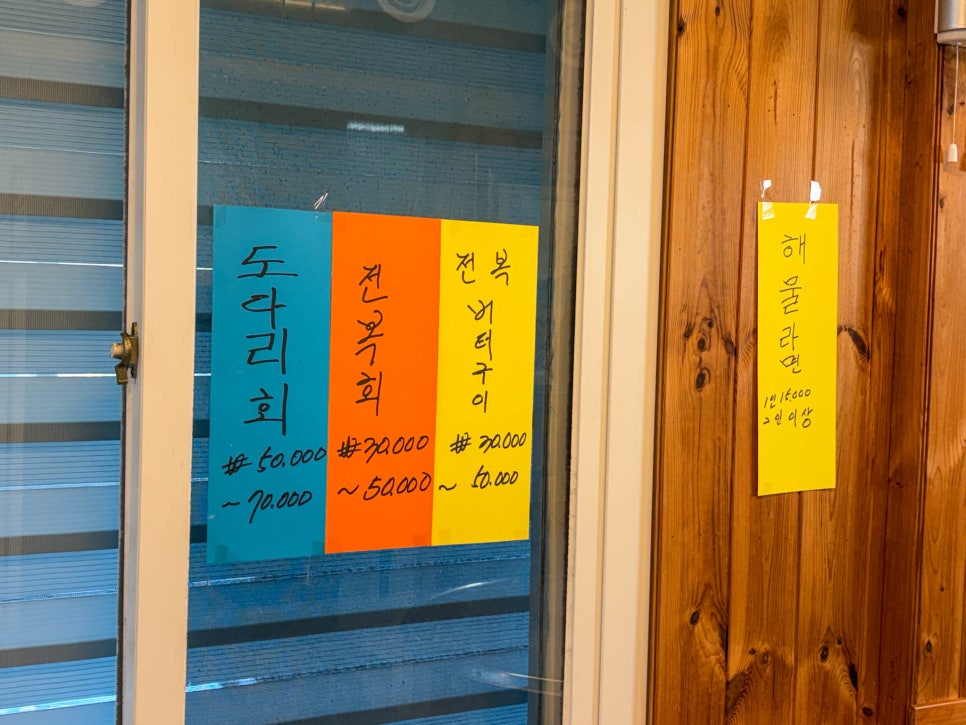 도다리회
₩50.000
~70.000
전복회
₩30.000
~50.000
전복
버터구이
₩30.000
~50.000
해물라면
1인 15,000
2인이상